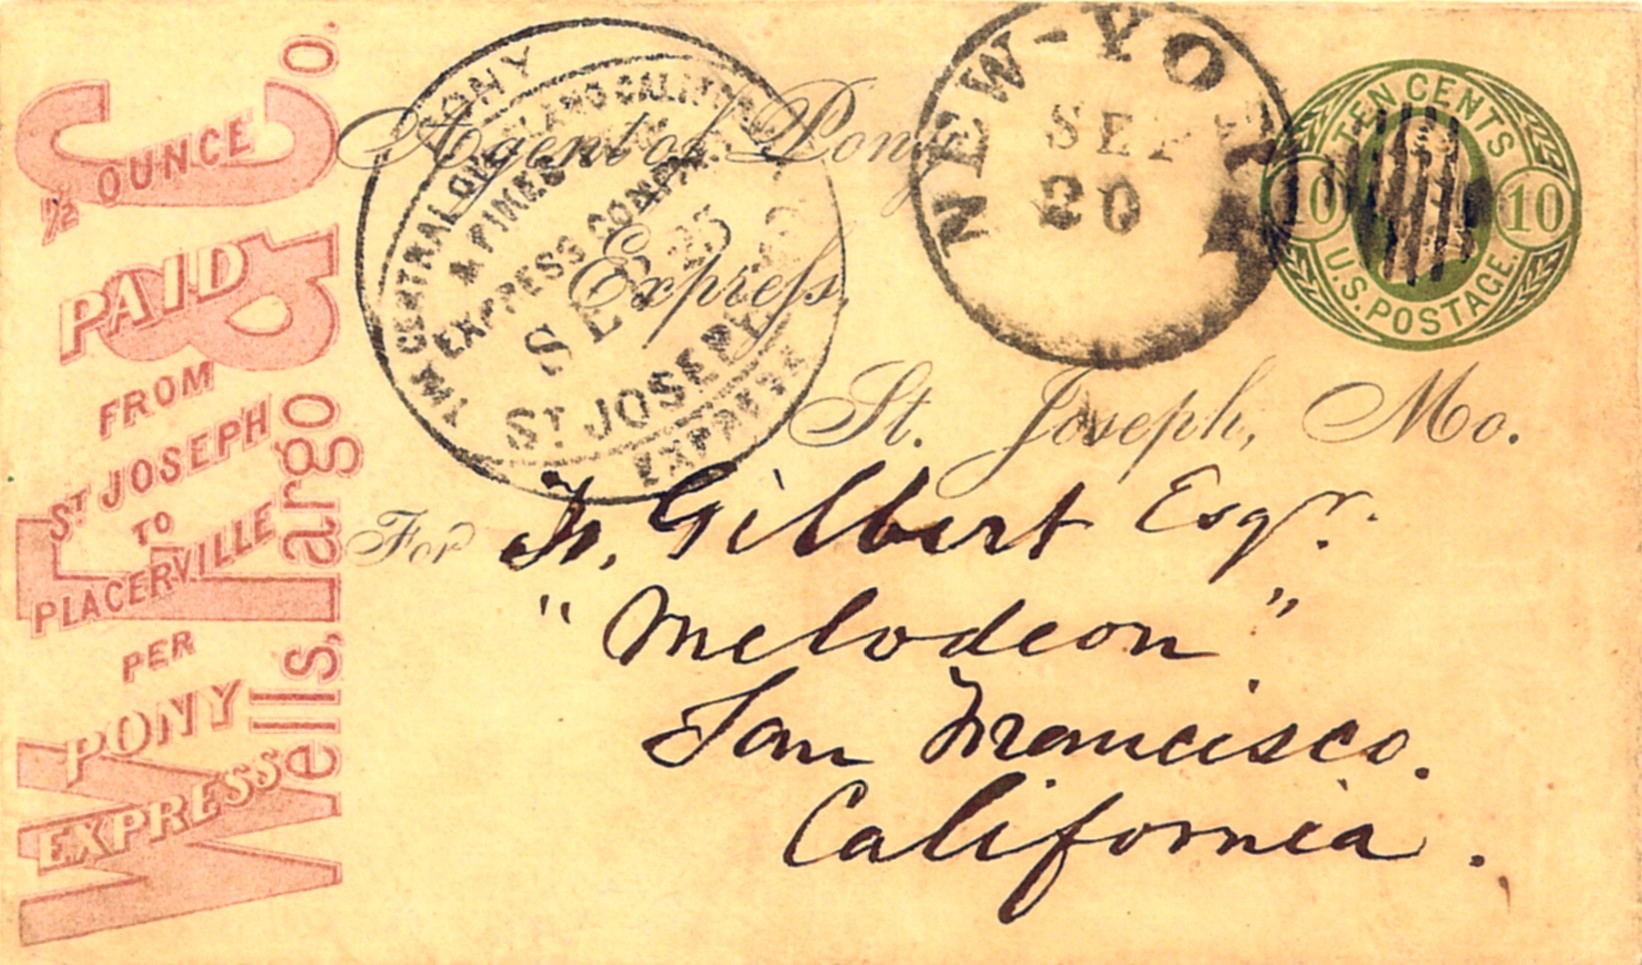 Wells, Fargo & Co.
½ OUNCE
PAID
FROM
ST JOSEPH
TO
PLACERVILLE
PER
PONY
EXPRESS
PONY
THE CENTRAL OVERLAND CALIFORNIA
& PIKES PEAK
EXPRESS COMPANY
SEP 25
ST JOSEPH
EXPRESS
NEW-YORK
SEP
20
TEN CENTS
10 10
U.S. POSTAGE.
Agent of Pony
Express,
St. Joseph, Mo.
For Fr. Gilbert Esqr.
"Melodeon"
San Francisco.
California.